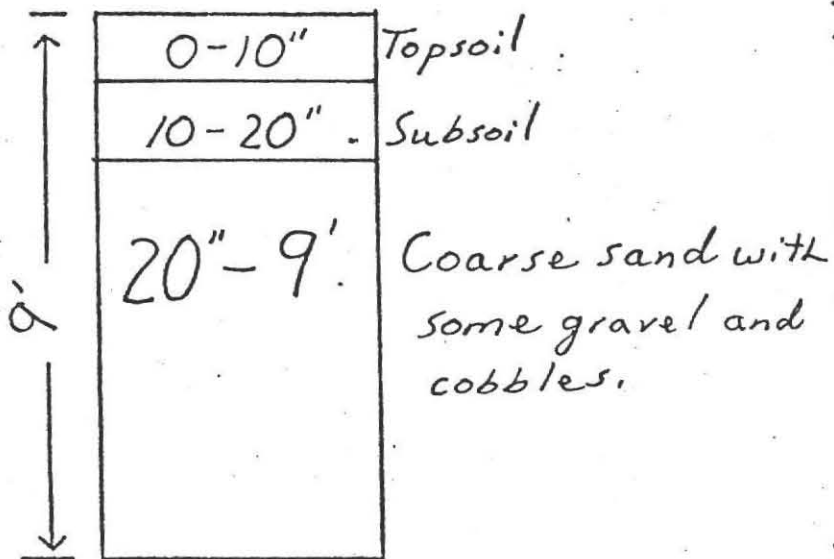 0-10" Topsoil
10-20" Subsoil
20"-9' Coarse sand with
some gravel and
cobbles.
9'